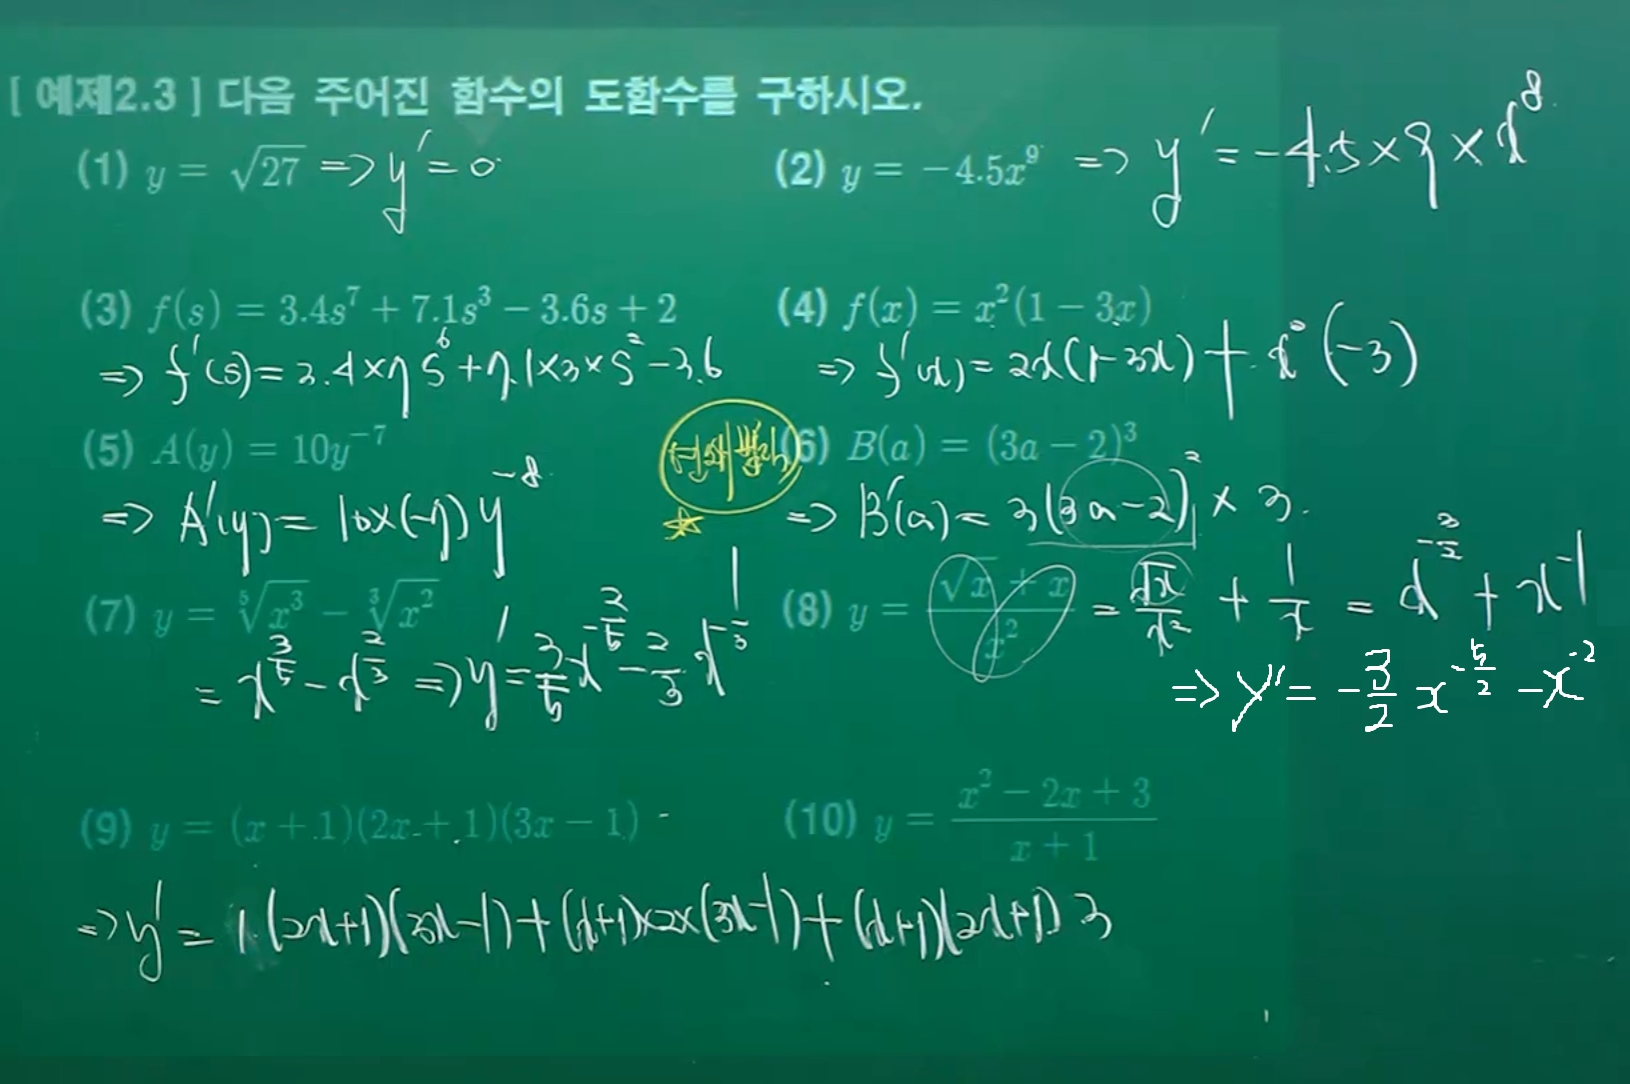 [ 예제2.3 ] 다음 주어진 함수의 도함수를 구하시오.
(1) y = √27 => y' = 0
(2) y = −4.5x⁹ => y' = −4.5×9×x⁸
(3) f(s) = 3.4s⁷ + 7.1s³ − 3.6s + 2
=> f'(s) = 3.4×7s⁶ + 7.1×3×s² − 3.6
(4) f(x) = x²(1 − 3x)
=> f'(x) = 2x(1−3x) + x²(−3)
(5) A(y) = 10y⁻⁷
=> A'(y) = 10×(−7)y⁻⁸
(6) B(a) = (3a − 2)³
=> B'(a) = 3(3a−2)² × 3.
(7) y = ⁵√x³ − ³√x²
= x^(3/5) − x^(2/3) => y' = 3/5 x^(−2/5) − 2/3 x^(−1/3)
(8) y = (√x + x)/x² = √x/x² + 1/x = x^(−3/2) + x⁻¹
=> y' = −3/2 x^(−5/2) − x⁻²
(9) y = (x + 1)(2x + 1)(3x − 1)
=> y' = 1·(2x+1)(3x−1) + (x+1)×2×(3x−1) + (x+1)(2x+1) 3
(10) y = (x² − 2x + 3)/(x + 1)